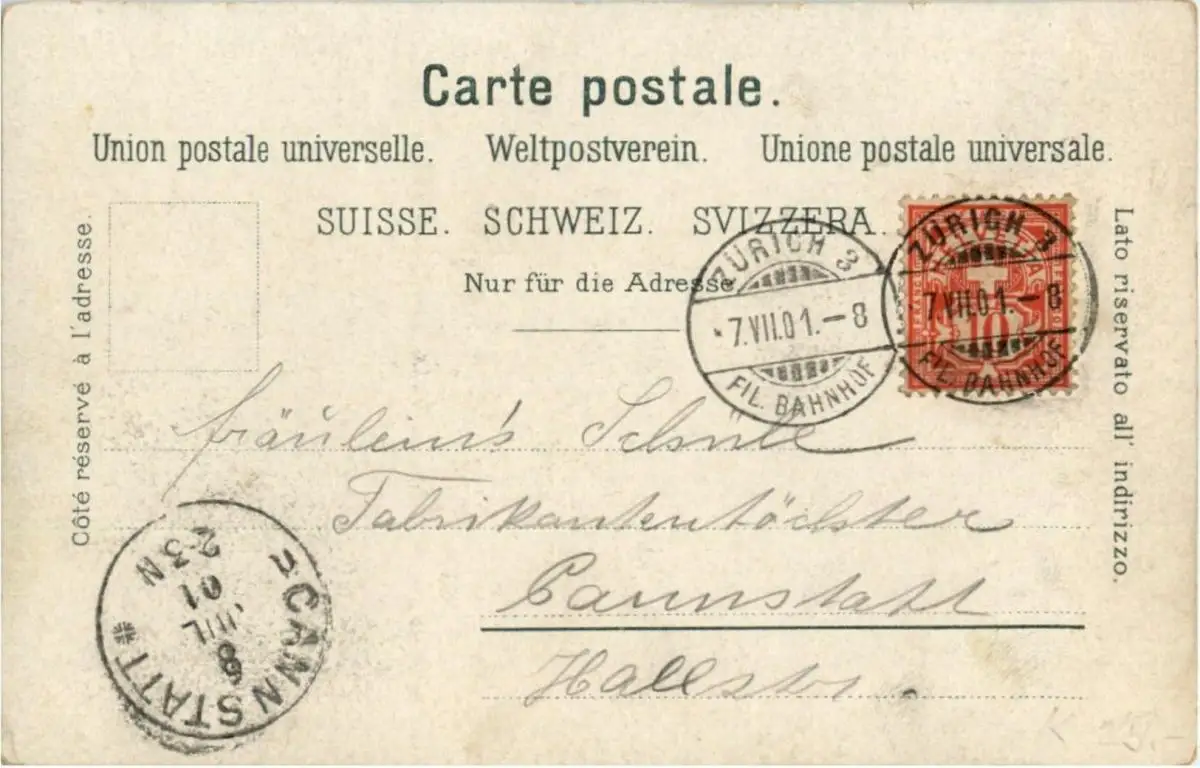 Carte postale.
Union postale universelle. Weltpostverein. Unione postale universale.
SUISSE. SCHWEIZ. SVIZZERA.
Nur für die Adresse
Côté réservé à l'adresse.
Lato riservato all' indirizzo.
ZÜRICH 3
7.VII.01.-8
FIL. BAHNHOF
ZÜRICH 3
7.VII.01.-8
FIL. BAHNHOF
10
Fräulein's
Fabrikantentöchter
Cannstatt
CANNSTATT
8
JUL
01
2-3N